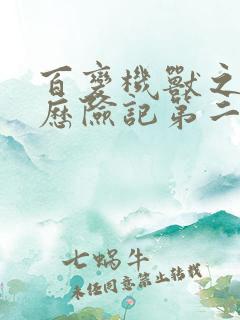 百變機獸之
歷險記第二
七蜗牛
未任同意禁止转载